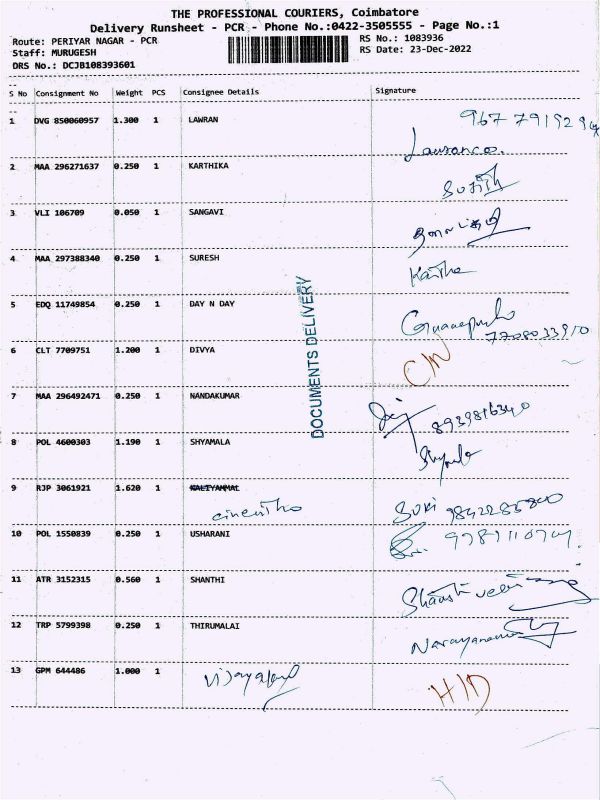 THE PROFESSIONAL COURIERS, Coimbatore
Delivery Runsheet - PCR - Phone No.:0422-3505555 - Page No.:1
Route: PERIYAR NAGAR - PCR
RS No.: 1083936
Staff: MURUGESH
RS Date: 23-Dec-2022
DRS No.: DCJB108393601
S No Consignment No Weight PCS Consignee Details Signature
1 DVG 850060957 1.300 1 LAWRAN
Lawrance.
2 MAA 296271637 0.250 1 KARTHIKA
3 VLI 106709 0.050 1 SANGAVI
4 MAA 297388340 0.250 1 SURESH
5 EDQ 11749854 0.250 1 DAY N DAY
7708033910
6 CLT 7709751 1.200 1 DIVYA C/N
7 MAA 296492471 0.250 1 NANDAKUMAR
8939816340
8 POL 4600303 1.190 1 SHYAMALA
9 RJP 3061921 1.620 1 KALIYAMMAL
10 POL 1550839 0.250 1 USHARANI
11 ATR 3152315 0.560 1 SHANTHI
12 TRP 5799398 0.250 1 THIRUMALAI
13 GPM 644486 1.000 1 H/D
DOCUMENTS DELIVERY